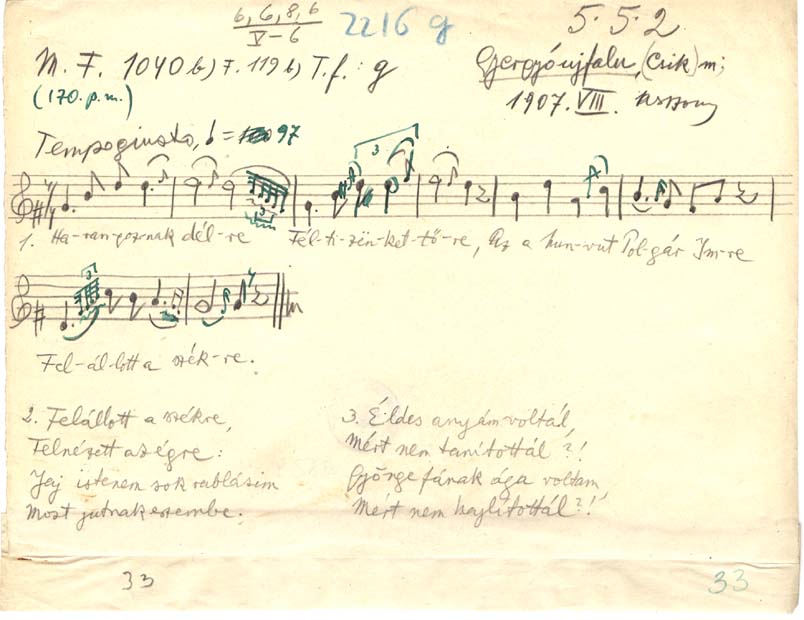 6, 6, 8, 6
V-6
2216 g
5·5·2
M. F. 1040 b) F. 119 b) T. f.: g
Gyergyóújfalu, (Csik) m;
(170. p. m.)
1907. VIII. asszony
Tempo giusto, 97
1. Ha-ran-goznak dél-re Fél-ti-zën-ket-tő-re, Az a hun-vut Pol-gár Im-re
Fel-ál-lott a szék-re.
2. Felállott a székre,
Felnézett az égre:
Jaj istenem sok rablásim
Most jutnak eszembe.
3. Éldes anyám voltál,
Mért nem tanítottál?!
Gyönge fának ága voltam
Mért nem hajlítottál?!
33
33